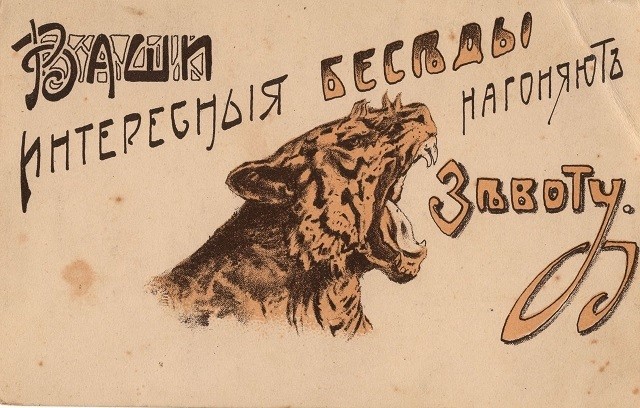 Ваши
интересныя бесѣды нагоняютъ
зѣвоту.